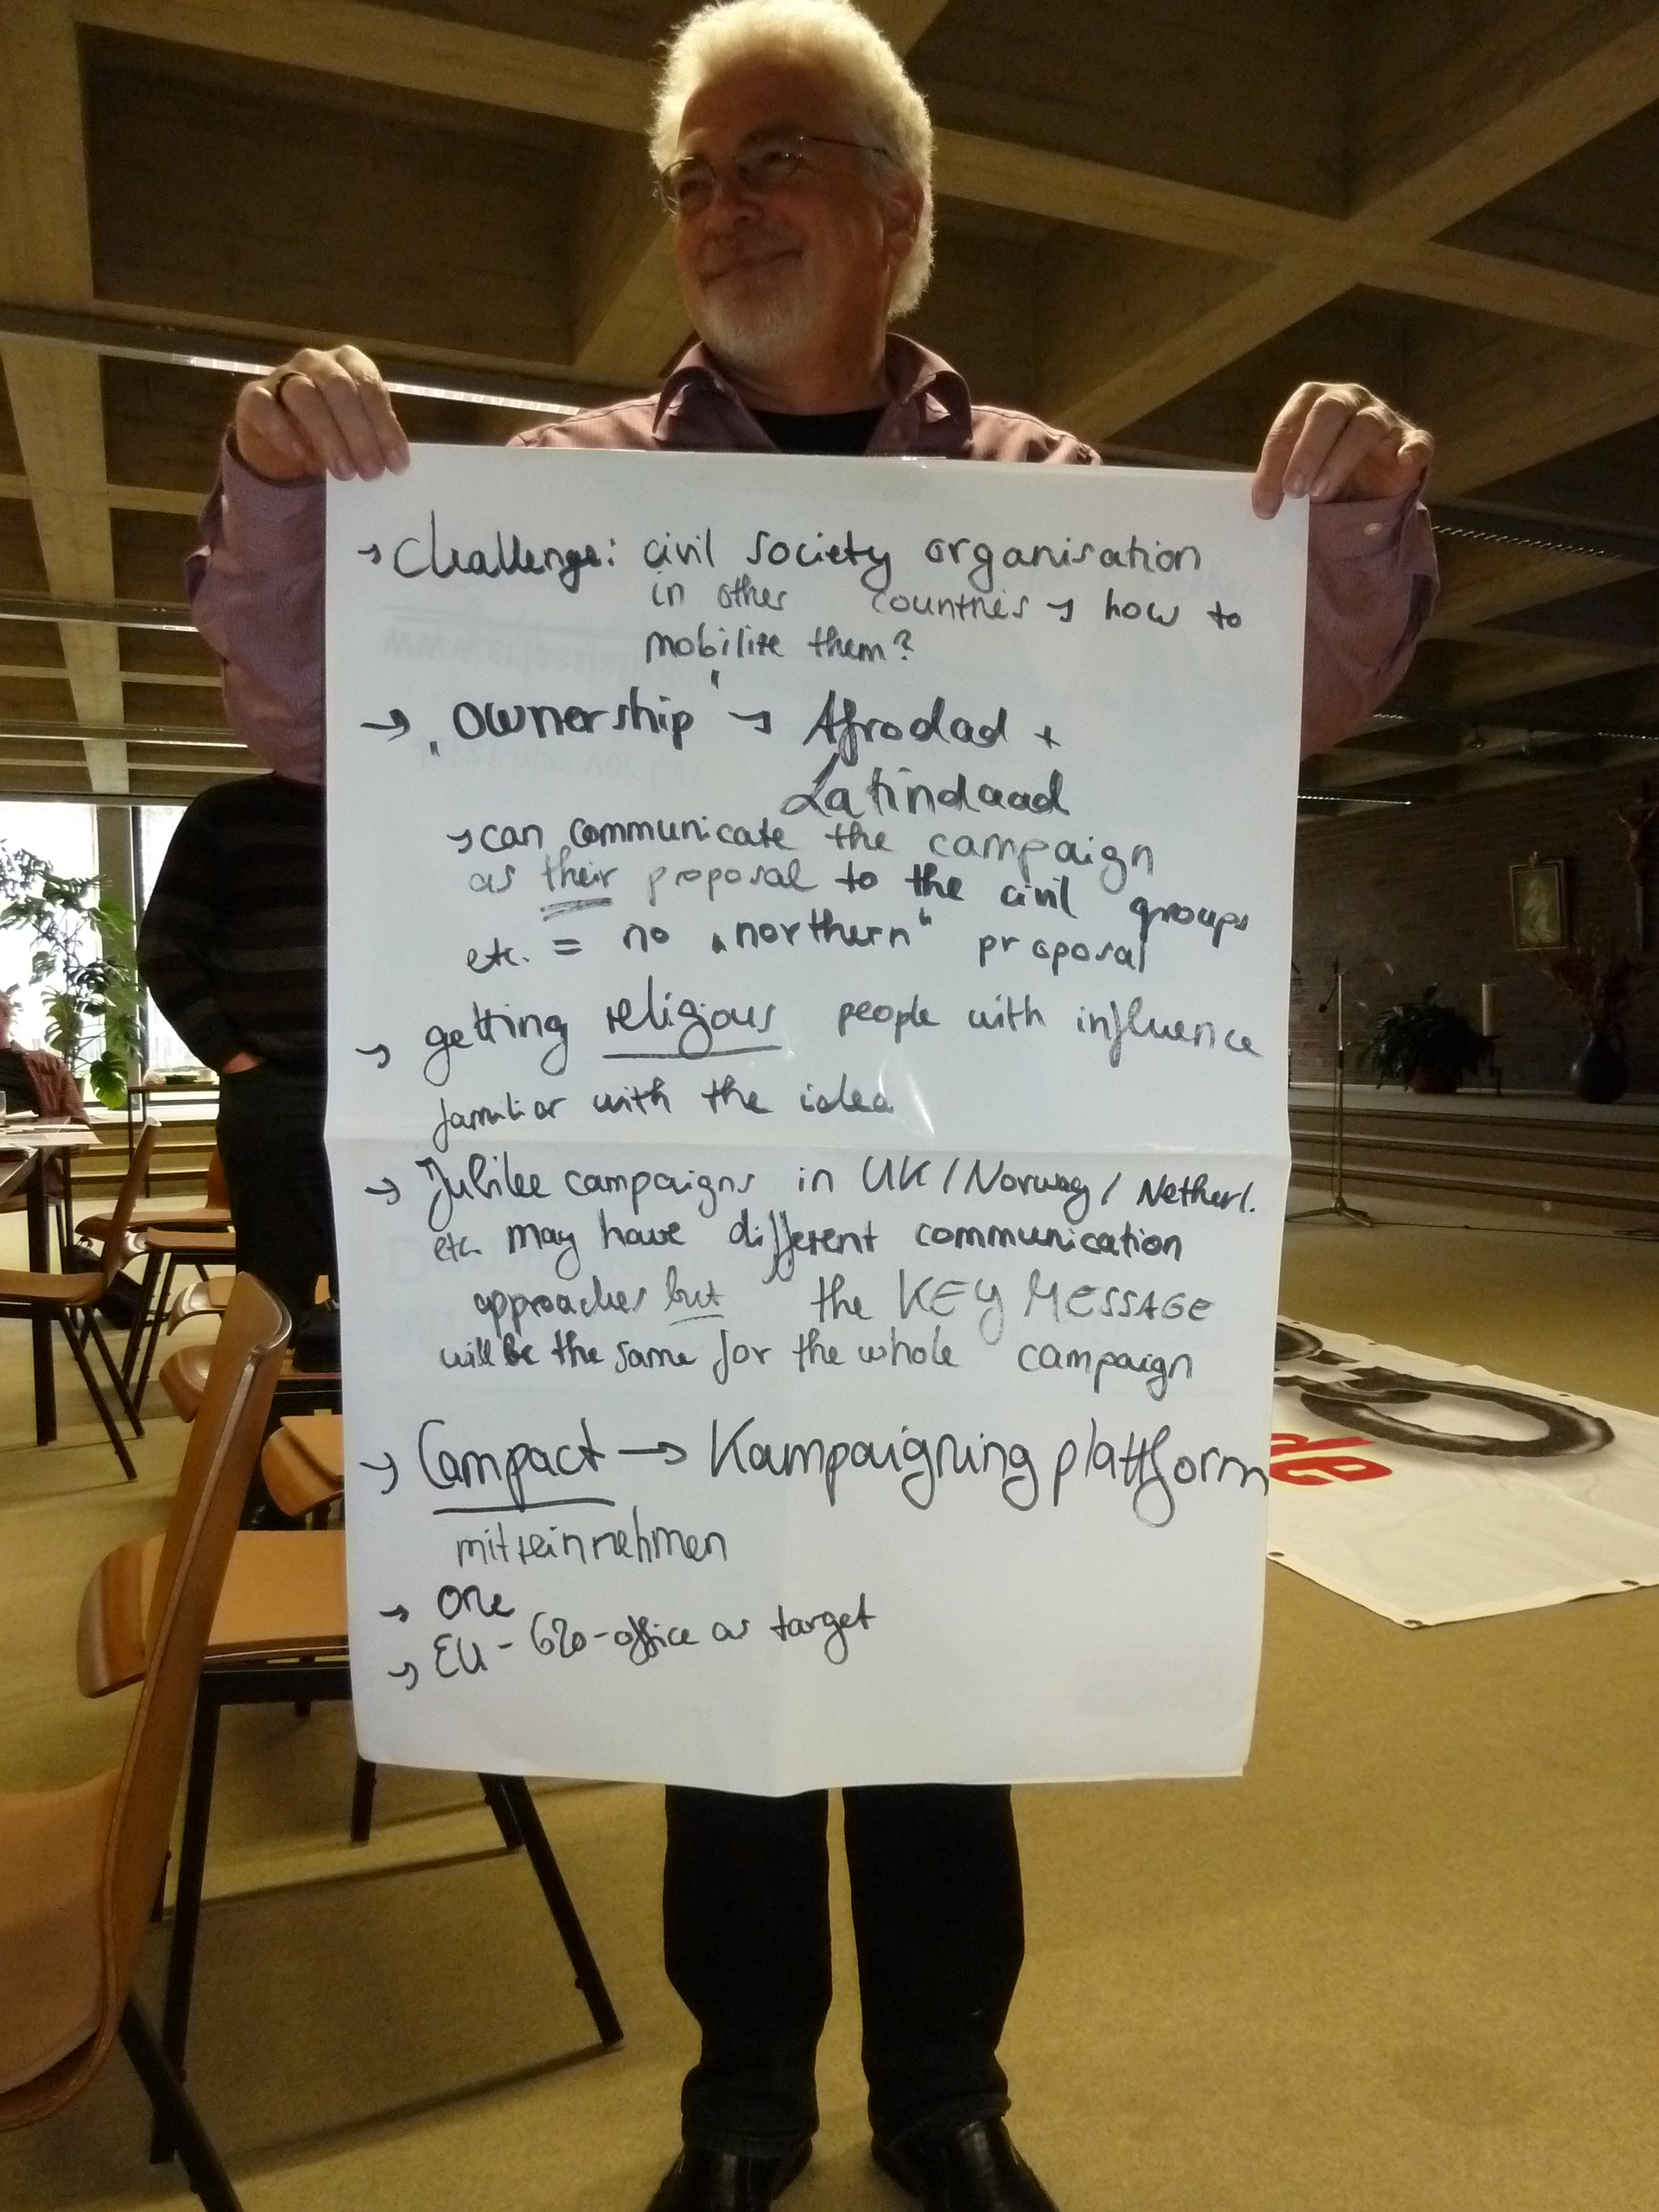 → Challenge: civil society organisation
in other countries → how to
mobilize them?
→ „Ownership" → Afrodad +
Latindaad
→ can communicate the campaign
as their proposal to the civil groups
etc. = no „northern" proposal
→ getting religious people with influence
familiar with the idea
→ Jubilee campaigns in UK / Norway / Netherl.
etc. may have different communication
approaches but the KEY MESSAGE
will be the same for the whole campaign
→ Campact → Kampaigning plattform
mitreinnehmen
→ One
→ EU - G20-office as target